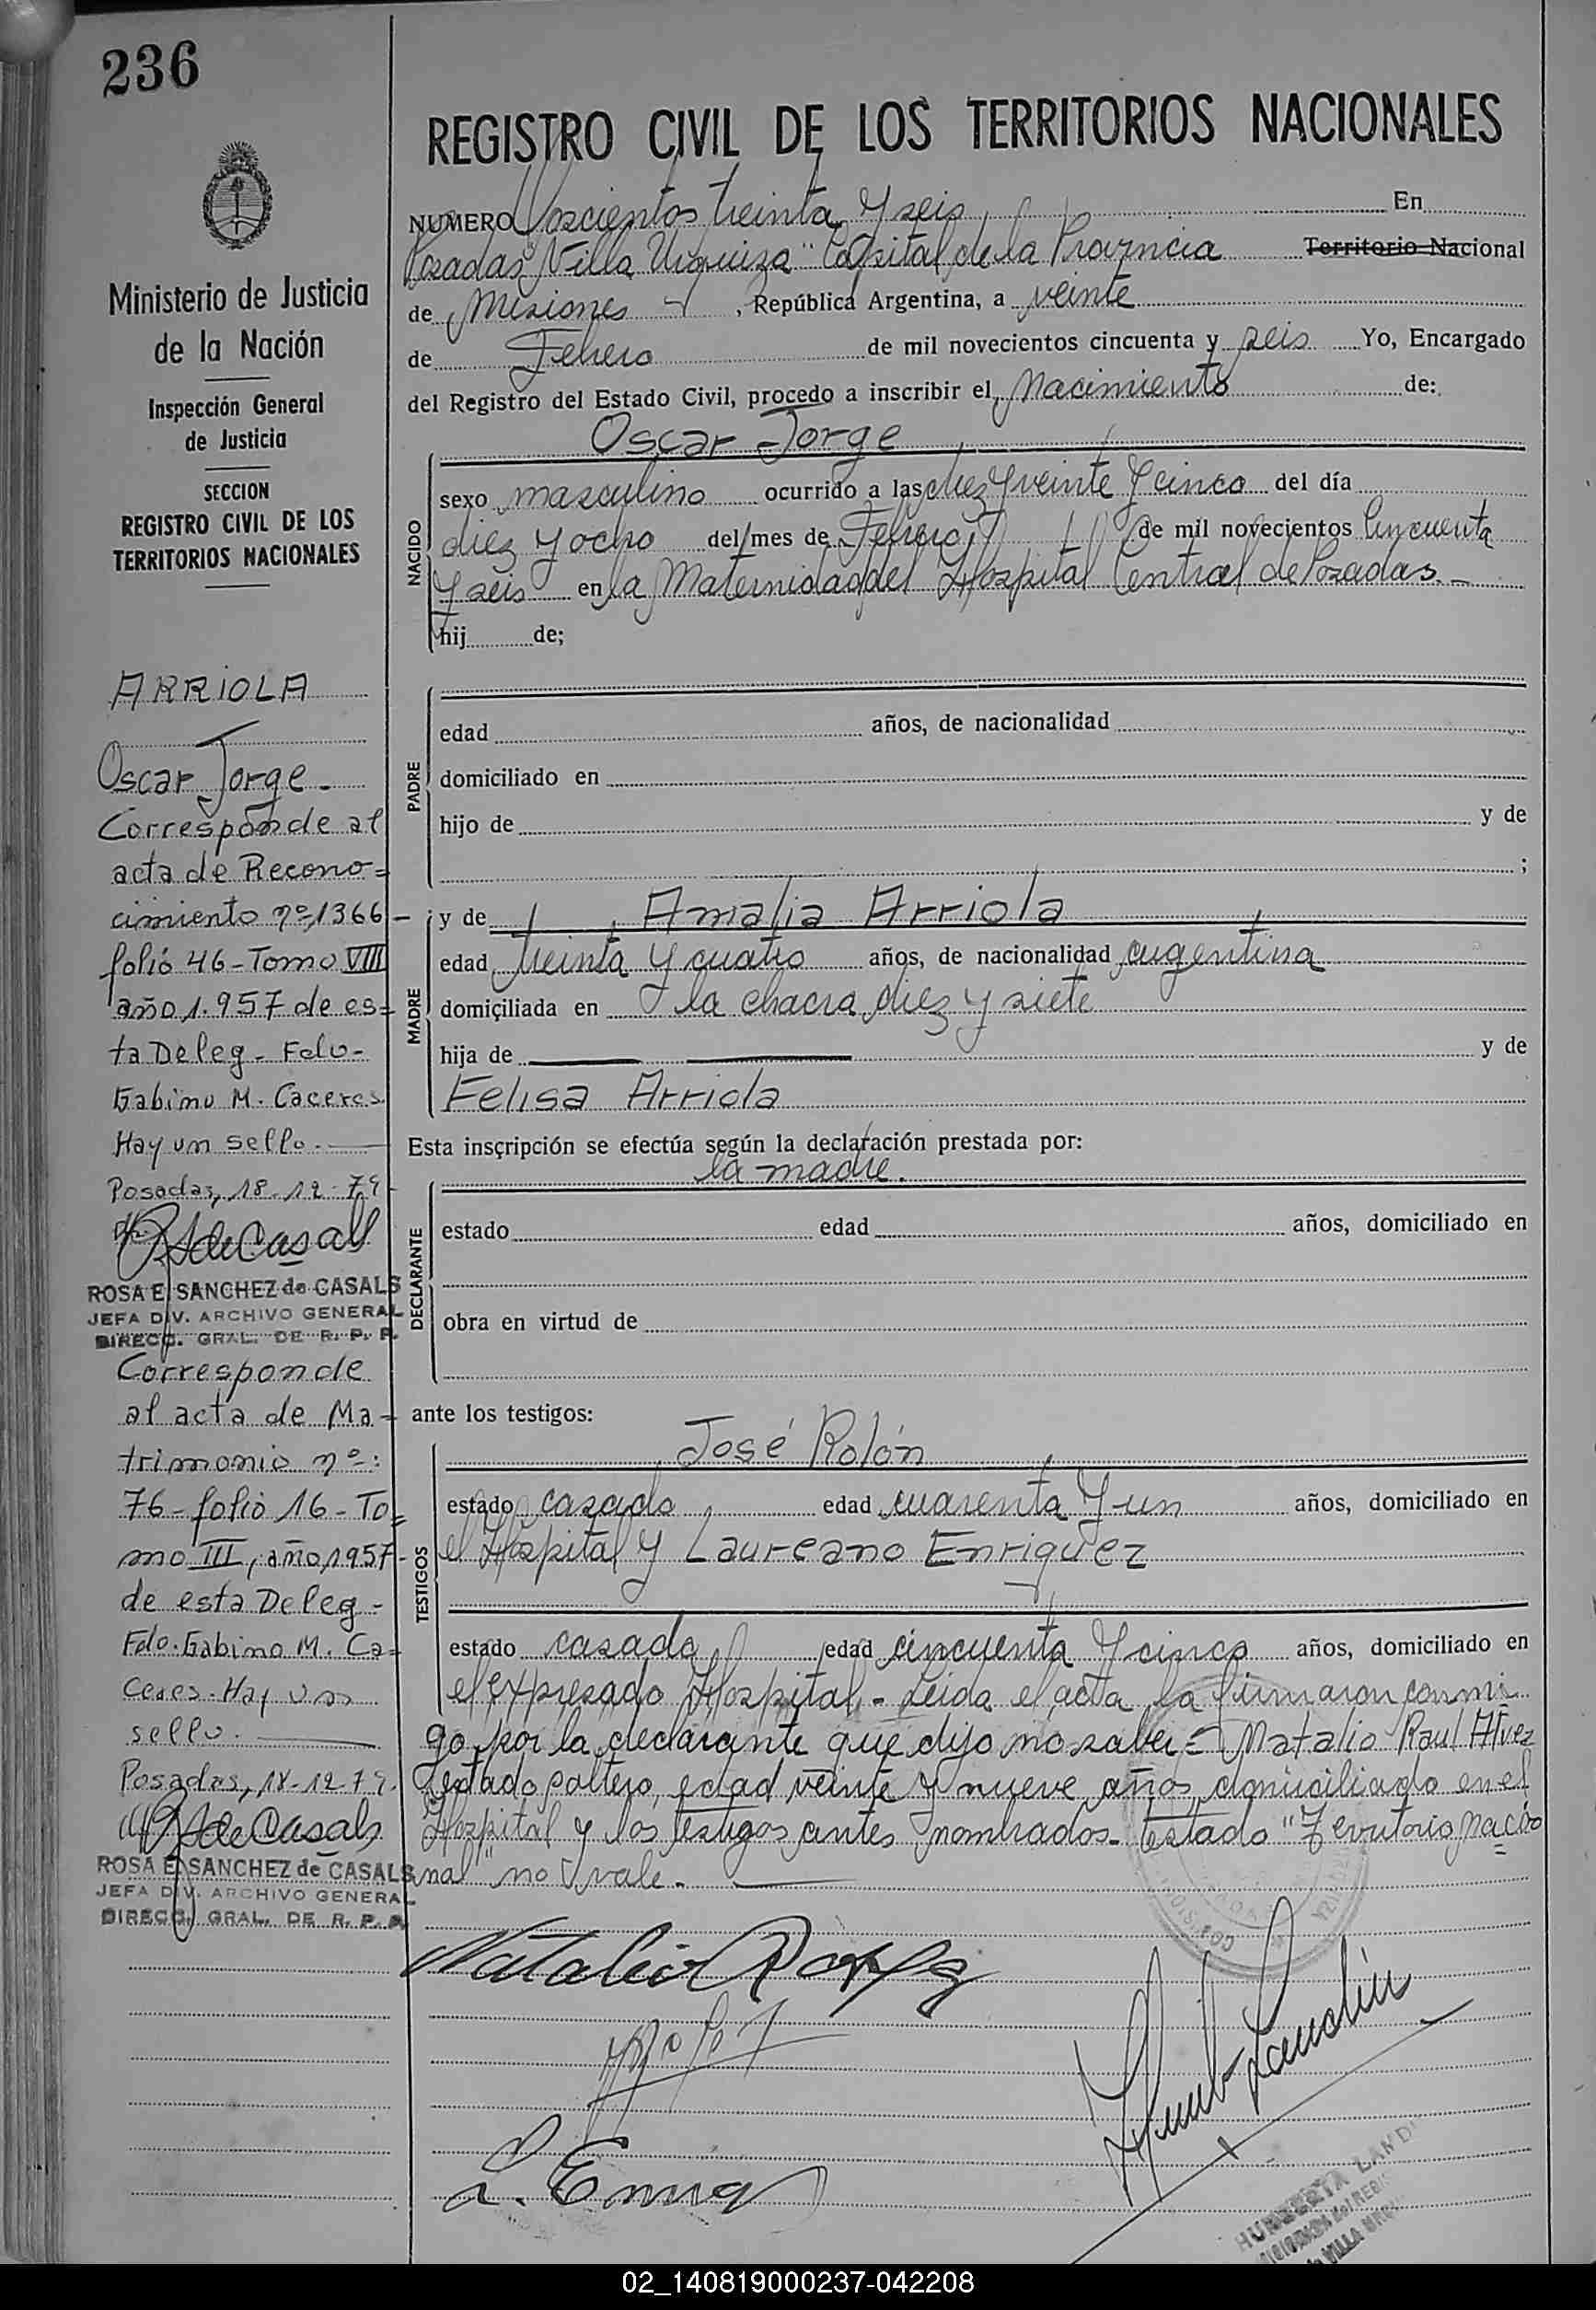 236
REGISTRO CIVIL DE LOS TERRITORIOS NACIONALES
Ministerio de Justicia
de la Nación
Inspección General
de Justicia
SECCION
REGISTRO CIVIL DE LOS
TERRITORIOS NACIONALES
ARRIOLA
Oscar Jorge.
Corresponde al
acta de Recono=
cimiento nº 1366-
folio 46-Tomo VIII
año 1.957 de es=
ta Deleg- Fdo-
Gabino M. Caceres
Hay un sello.
Posadas, 18-12-79
ROSA E. SANCHEZ de CASALS
JEFA DIV. ARCHIVO GENERAL
DIRECC. GRAL. DE R. P. P.
Corresponde
al acta de Ma-
trimonio nº:
76-folio 16-To=
mo III, año 1957-
de esta Deleg-
Fdo. Gabino M. Ca=
ceres. Hay un
sello.
Posadas, 18-12-79.
ROSA E. SANCHEZ de CASALS
JEFA DIV. ARCHIVO GENERAL
DIRECC. GRAL. DE R. P. P.
NUMERO Doscientos treinta y seis En
Posadas "Villa Urquiza" Capital de la Provincia Territorio Nacional
de Misiones, República Argentina, a veinte
de Febrero de mil novecientos cincuenta y seis Yo, Encargado
del Registro del Estado Civil, procedo a inscribir el Nacimiento de:
Oscar Jorge
NACIDO
sexo masculino ocurrido a las diez y veinte y cinco del día
diez y ocho del mes de Febrero de mil novecientos cincuenta
y seis en la Maternidad del Hospital Central de Posadas.-
hij de;
PADRE
edad años, de nacionalidad
domiciliado en
hijo de y de
;
MADRE
y de Amalia Arriola
edad treinta y cuatro años, de nacionalidad argentina
domiciliada en la chacra diez y siete
hija de y de
Felisa Arriola
Esta inscripción se efectúa según la declaración prestada por:
la madre.
DECLARANTE
estado edad años, domiciliado en
obra en virtud de
ante los testigos:
José Rolón
TESTIGOS
estado casado edad cuarenta y un años, domiciliado en
el Hospital y Laureano Enriquez
estado casado edad cincuenta y cinco años, domiciliado en
el expresado Hospital.- Leida el acta la firmaron conmi
go, por la declarante que dijo no saber= Natalio Raul Alvez
estado soltero, edad veinte y nueve años, domiciliado en el
Hospital y los testigos antes nombrados- testado "Territorio nacio
=
nal" no vale.-
L. Enriq
HUMBERTA LAND
VILLA URQU
02_140819000237-042208